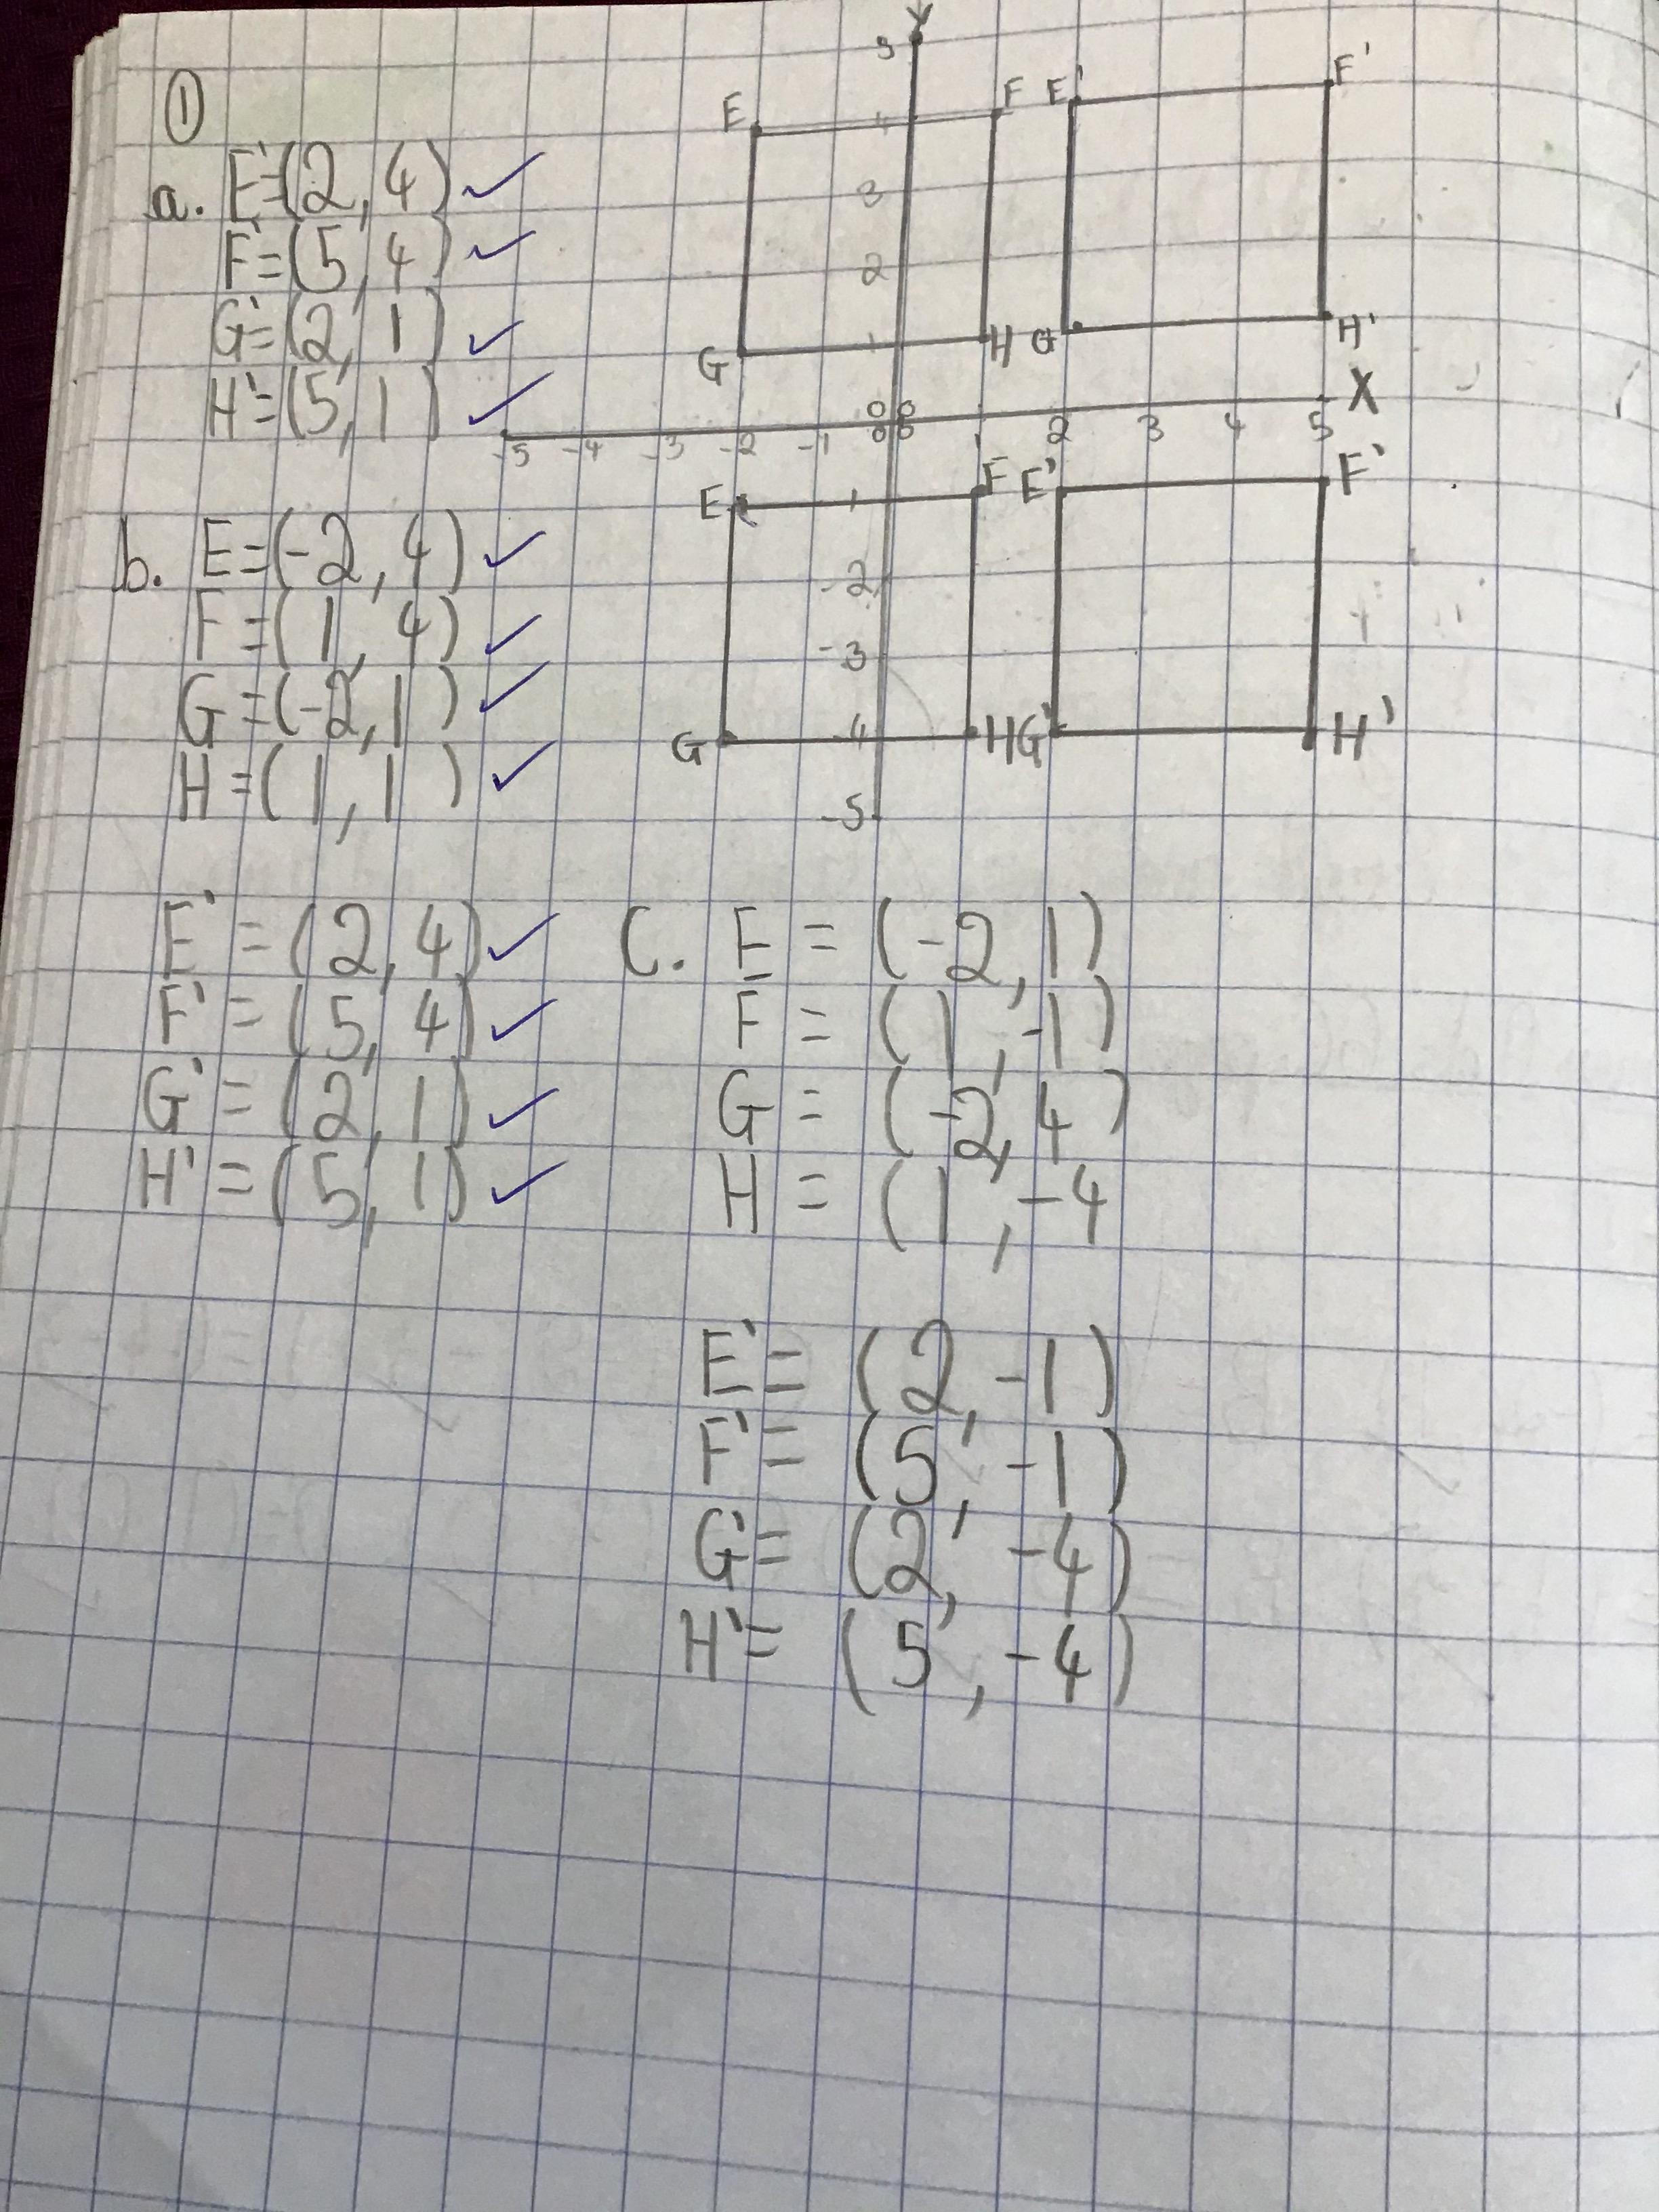 ①
a. E'=(2,4)
F'=(5,4)
G'=(2,1)
H'=(5,1)
Y
5
E F E' F'
4
3
2
G 1 H G' H'
0 0 X
-5 -4 -3 -2 -1 0 0 1 2 3 4 5
E -1 F E' F'
-2
-3
G -4 H G' H'
-5
b. E=(-2,4)
F=(1,4)
G=(-2,1)
H=(1,1)
E'=(2,4)
F'=(5,4)
G'=(2,1)
H'=(5,1)
C. E=(-2,1)
F=(1,-1)
G=(-2,4)
H=(1,-4
E'=(2,-1)
F'=(5,-1)
G'=(2,-4)
H'=(5,-4)